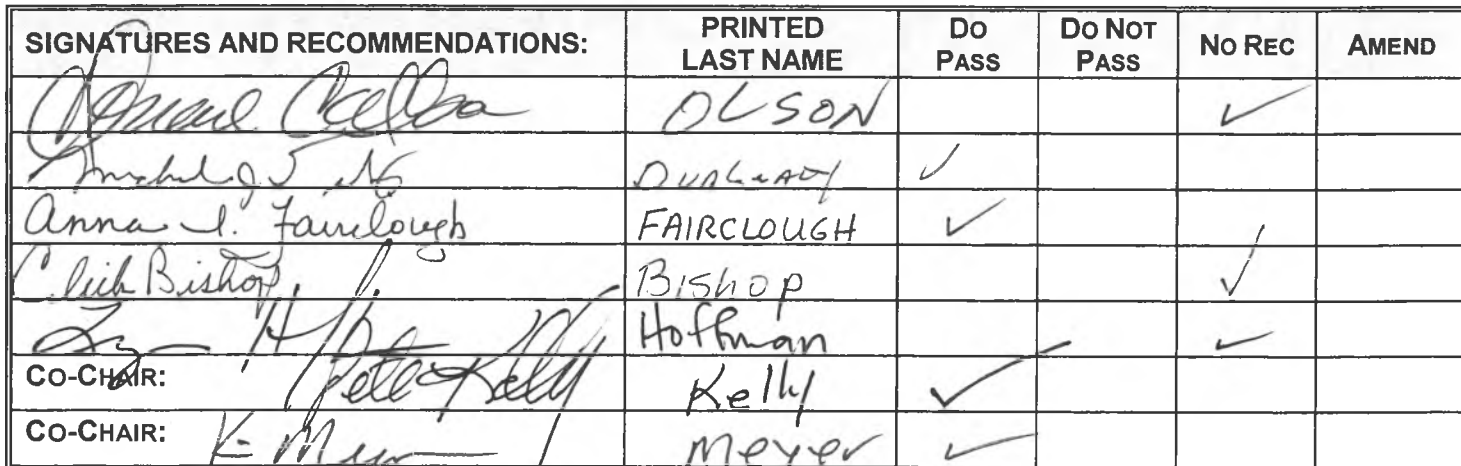 SIGNATURES AND RECOMMENDATIONS: PRINTED LAST NAME DO PASS DO NOT PASS NO REC AMEND
OLSON ✓
✓
Anna I. Fairclough FAIRCLOUGH ✓
Click Bishop BISHOP ✓
Hoffman ✓
CO-CHAIR: Pete Kelly Kelly ✓
CO-CHAIR: K Meyer Meyer ✓